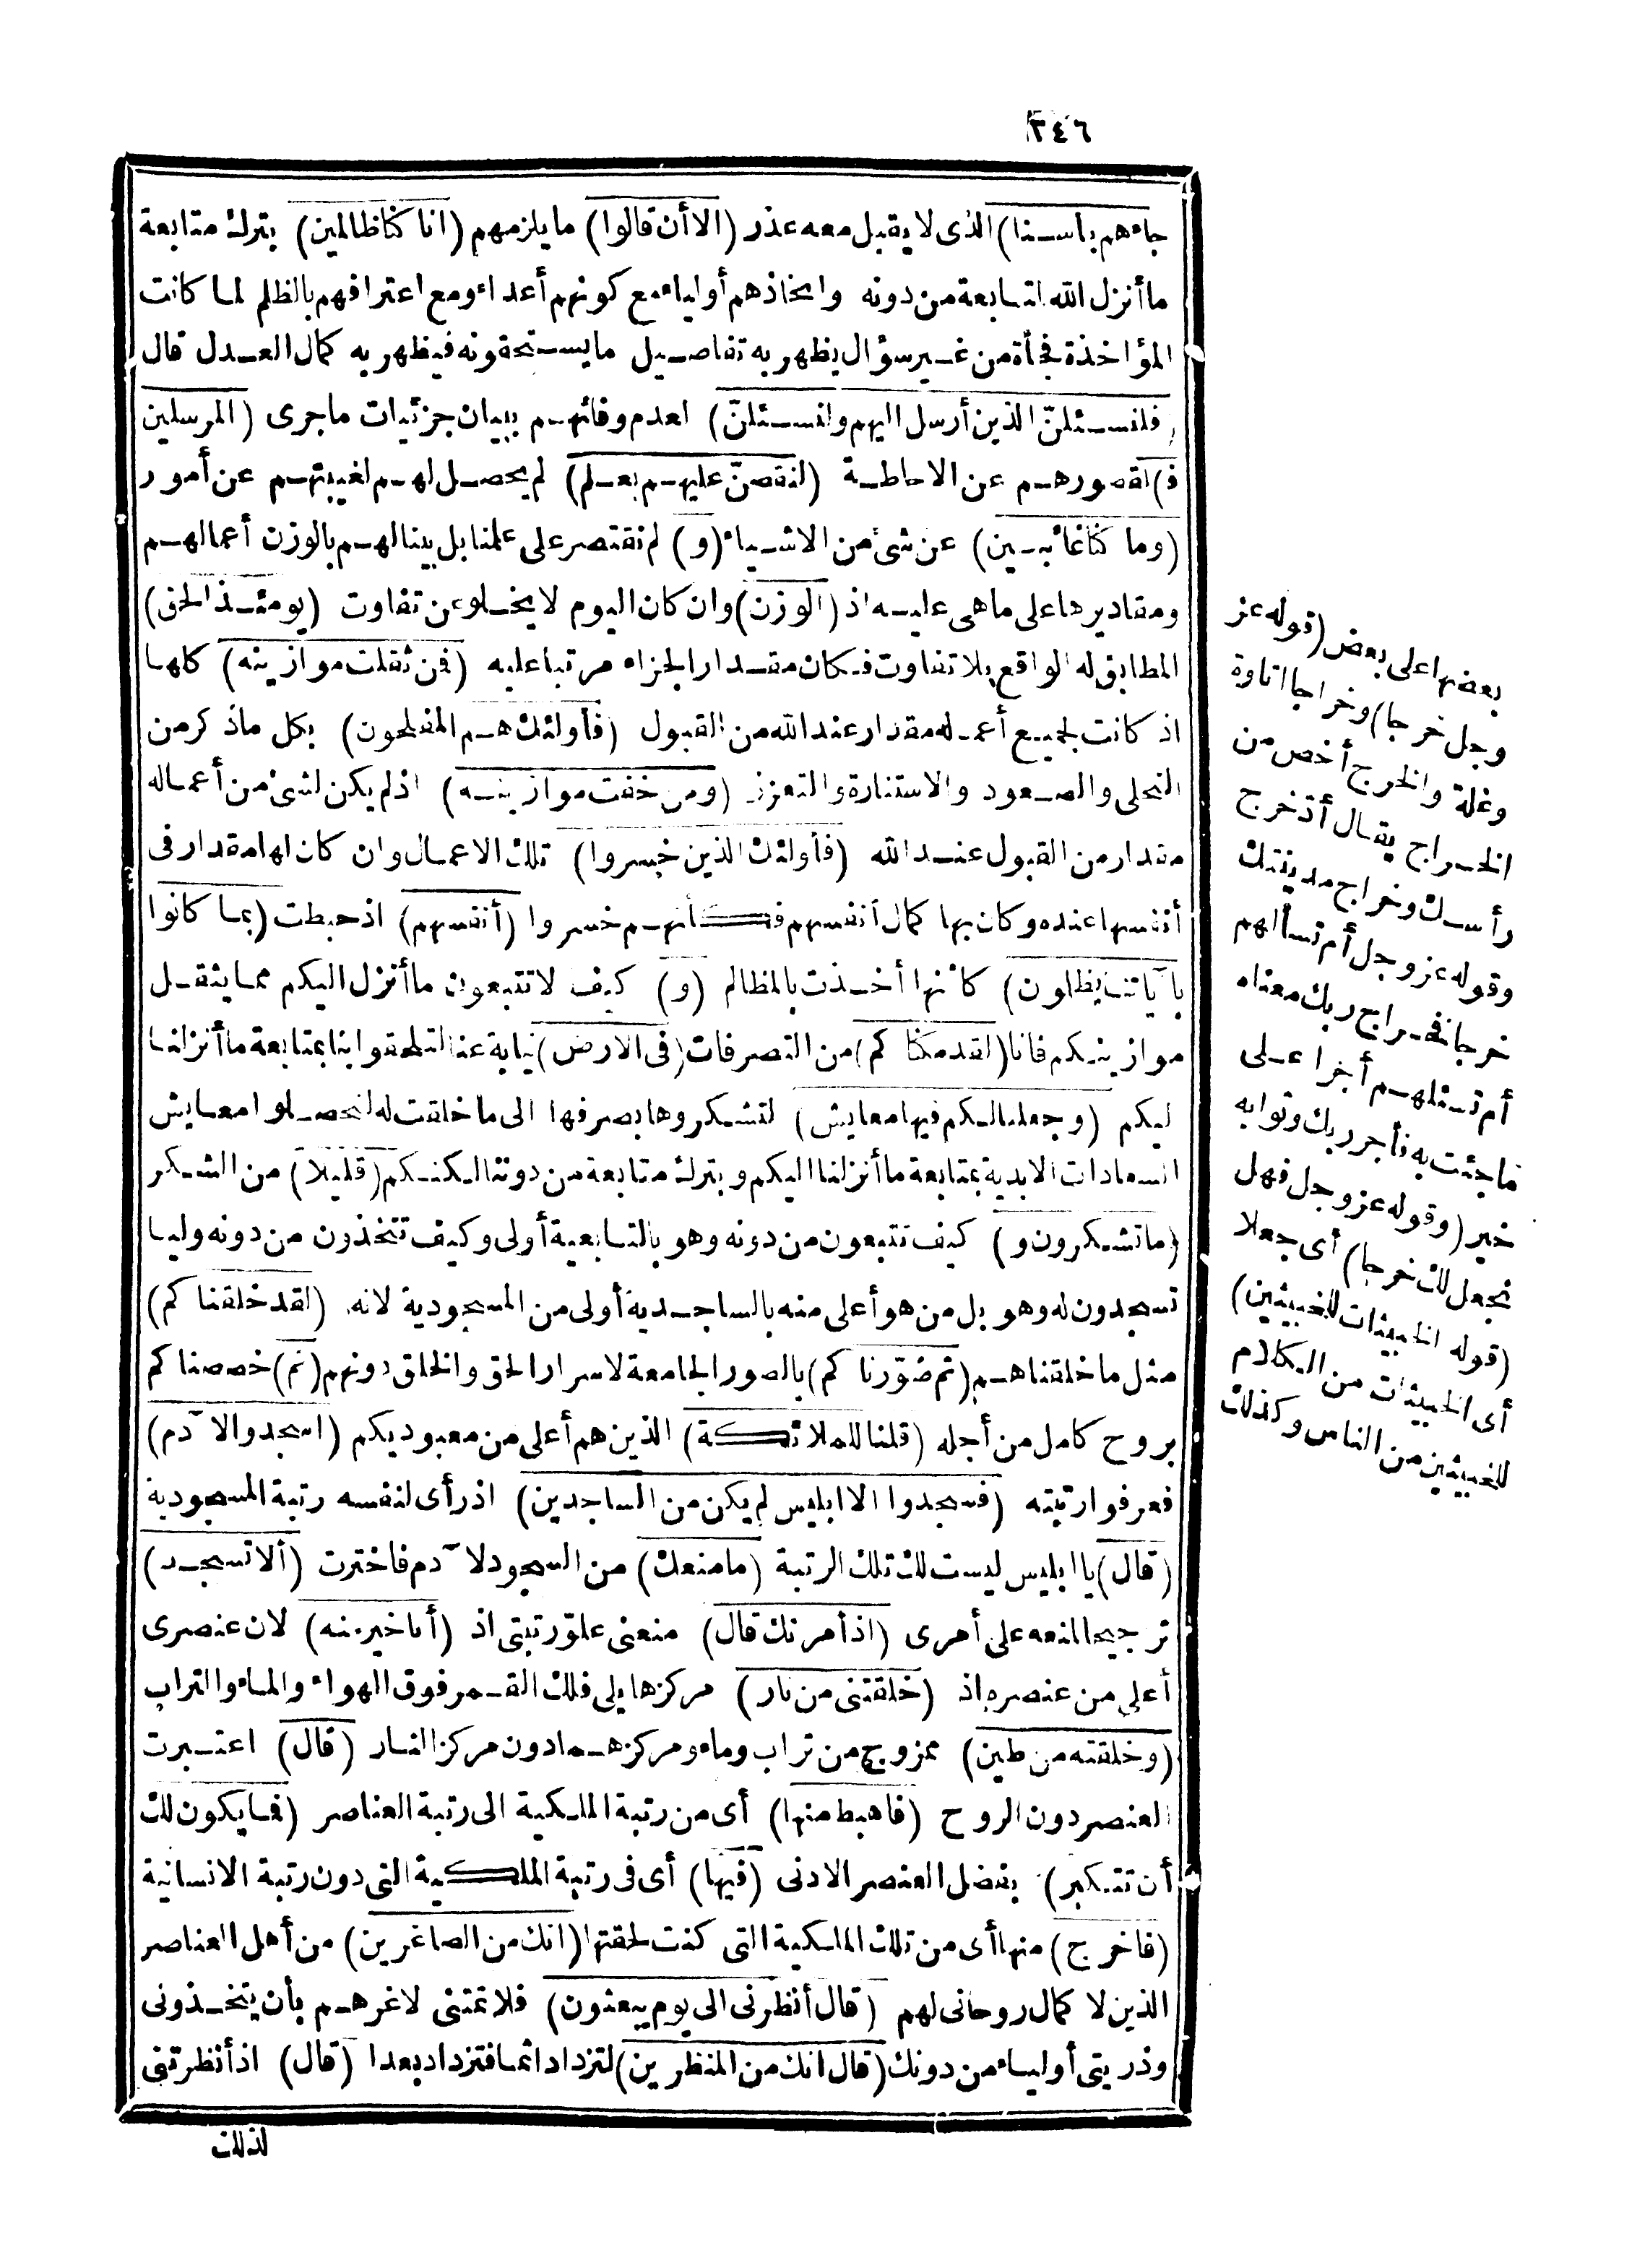 ٢٤٦
جاءهم بأسنا) الذى لا يقبل معه عذر (الا أن قالوا) ما يلزمهم (انا كنا ظالمين) بترك متابعة
ما أنزل الله لتابعة من دونه واتخاذهم أولياء مع كونهم أعداء ومع اعترافهم بالظلم لما كانت
المؤاخذة فجأة من غير سؤال يظهر به تفاصيل ما يستحقونه فيظهر به كمال العدل قال
(فلنسئلنّ الذين أرسل اليهم ولنسئلنّ) لعدم وفائهم ببيان جزئيات ما جرى (المرسلين
ف) لقصورهم عن الاحاطة (لنقصنّ عليهم بعلم) لم يحصل لهم لغيبتهم عن أمور
(وما كنا غائبين) عن شئ من الاشياء (و) لم نقتصر على علمنا بل بينا لهم بالوزن أعمالهم
ومقاديرها على ما هى عليه اذ (الوزن) وان كان اليوم لا يخلو عن تفاوت (يومئذ الحق)
المطابق له الواقع بلا تفاوت فكان مقدار الجزاء مرتبا عليه (فمن ثقلت موازينه) كلها
اذ كانت لجميع أعماله مقدار عند الله من القبول (فأولئك هم المفلحون) بكل ما ذكر من
التحلى والصعود والاستنارة والتعزز (ومن خفت موازينه) اذ لم يكن لشئ من أعماله
مقدار من القبول عند الله (فأولئك الذين خسروا) تلك الاعمال وان كان لها مقدار فى
أنفسها عنده وكان بها كمال أنفسهم فكأنهم خسروا (أنفسهم) اذ حبطت (بما كانوا
بآياتنا يظلمون) كأنها أخذت بالمظالم (و) كيف لا تتبعون ما أنزل اليكم مما يثقل
موازينكم فانا (لقد مكنا كم) من التصرفات (فى الارض) نيابة عنا لتلحقوا بنا بمتابعة ما أنزلنا
ليكم (وجعلنا لكم فيها معايش) لتشكروها بصرفها الى ما خلقت له لتحصلوا معايش
السعادات الابدية بمتابعة ما أنزلنا اليكم وبترك متابعة من دوننا لكنكم (قليلا) من الشكر
(ما تشكرون و) كيف تتبعون من دونه وهو بالتابعية أولى وكيف تتخذون من دونه وليا
تسجدون له وهو بل من هو أعلى منه بالساجدية أولى من المسجودية لانه (لقد خلقنا كم)
مثل ما خلقناهم (ثم صوّرنا كم) بالصور الجامعة لاسرار الحق والخلق دونهم (ثم) خصصنا كم
بروح كامل من أجله (قلنا للملائكة) الذين هم أعلى من معبوديكم (اسجدوا لآدم)
فعرفوا رتبته (فسجدوا الا ابليس لم يكن من الساجدين) اذ رأى لنفسه رتبة المسجودية
(قال) يا ابليس ليست لك تلك الرتبة (ما منعك) من السجود لآدم فاخترت (ألا تسجد)
ترجيحا لمنعه على أمرى (اذ أمرتك قال) منعنى علوّ رتبتى اذ (أنا خير منه) لان عنصرى
أعلى من عنصره اذ (خلقتنى من نار) مركزها يلى فلك القمر فوق الهواء والماء والتراب
(وخلقته من طين) ممزوج من تراب وماء ومركزهما دون مركز النار (قال) اعتبرت
العنصر دون الروح (فاهبط منها) أى من رتبة الملكية الى رتبة العناصر (فما يكون لك
أن تتكبر) بفضل العنصر الادنى (فيها) أى فى رتبة الملكية التى دون رتبة الانسانية
(فاخرج) منها أى من تلك الملكية التى كنت لحقتها (انك من الصاغرين) من أهل العناصر
الذين لا كمال روحانى لهم (قال أنظرنى الى يوم يبعثون) فلا تمتنى لاغرهم بأن يتخذونى
وذريتى أولياء من دونك (قال انك من المنظرين) لتزداد اثما فتزداد بعدا (قال) اذ أنظرتنى
لذلك
بعضها على بعض (قوله عز
وجل خرجا) وخراجا اتاوة
وغلة والخرج أخص من
الخراج يقال أدّ خرج
رأسك وخراج مدينتك
وقوله عز وجل أم تسألهم
خرجا فخراج ربك معناه
أم تسئلهم أجرا على
ما جئت به فأجر ربك وثوابه
خير (وقوله عز وجل فهل
نجعل لك خرجا) أى جعلا
(قوله الخبيثات للخبيثين)
أى الخبيثات من الكلام
للخبيثين من الناس وكذلك